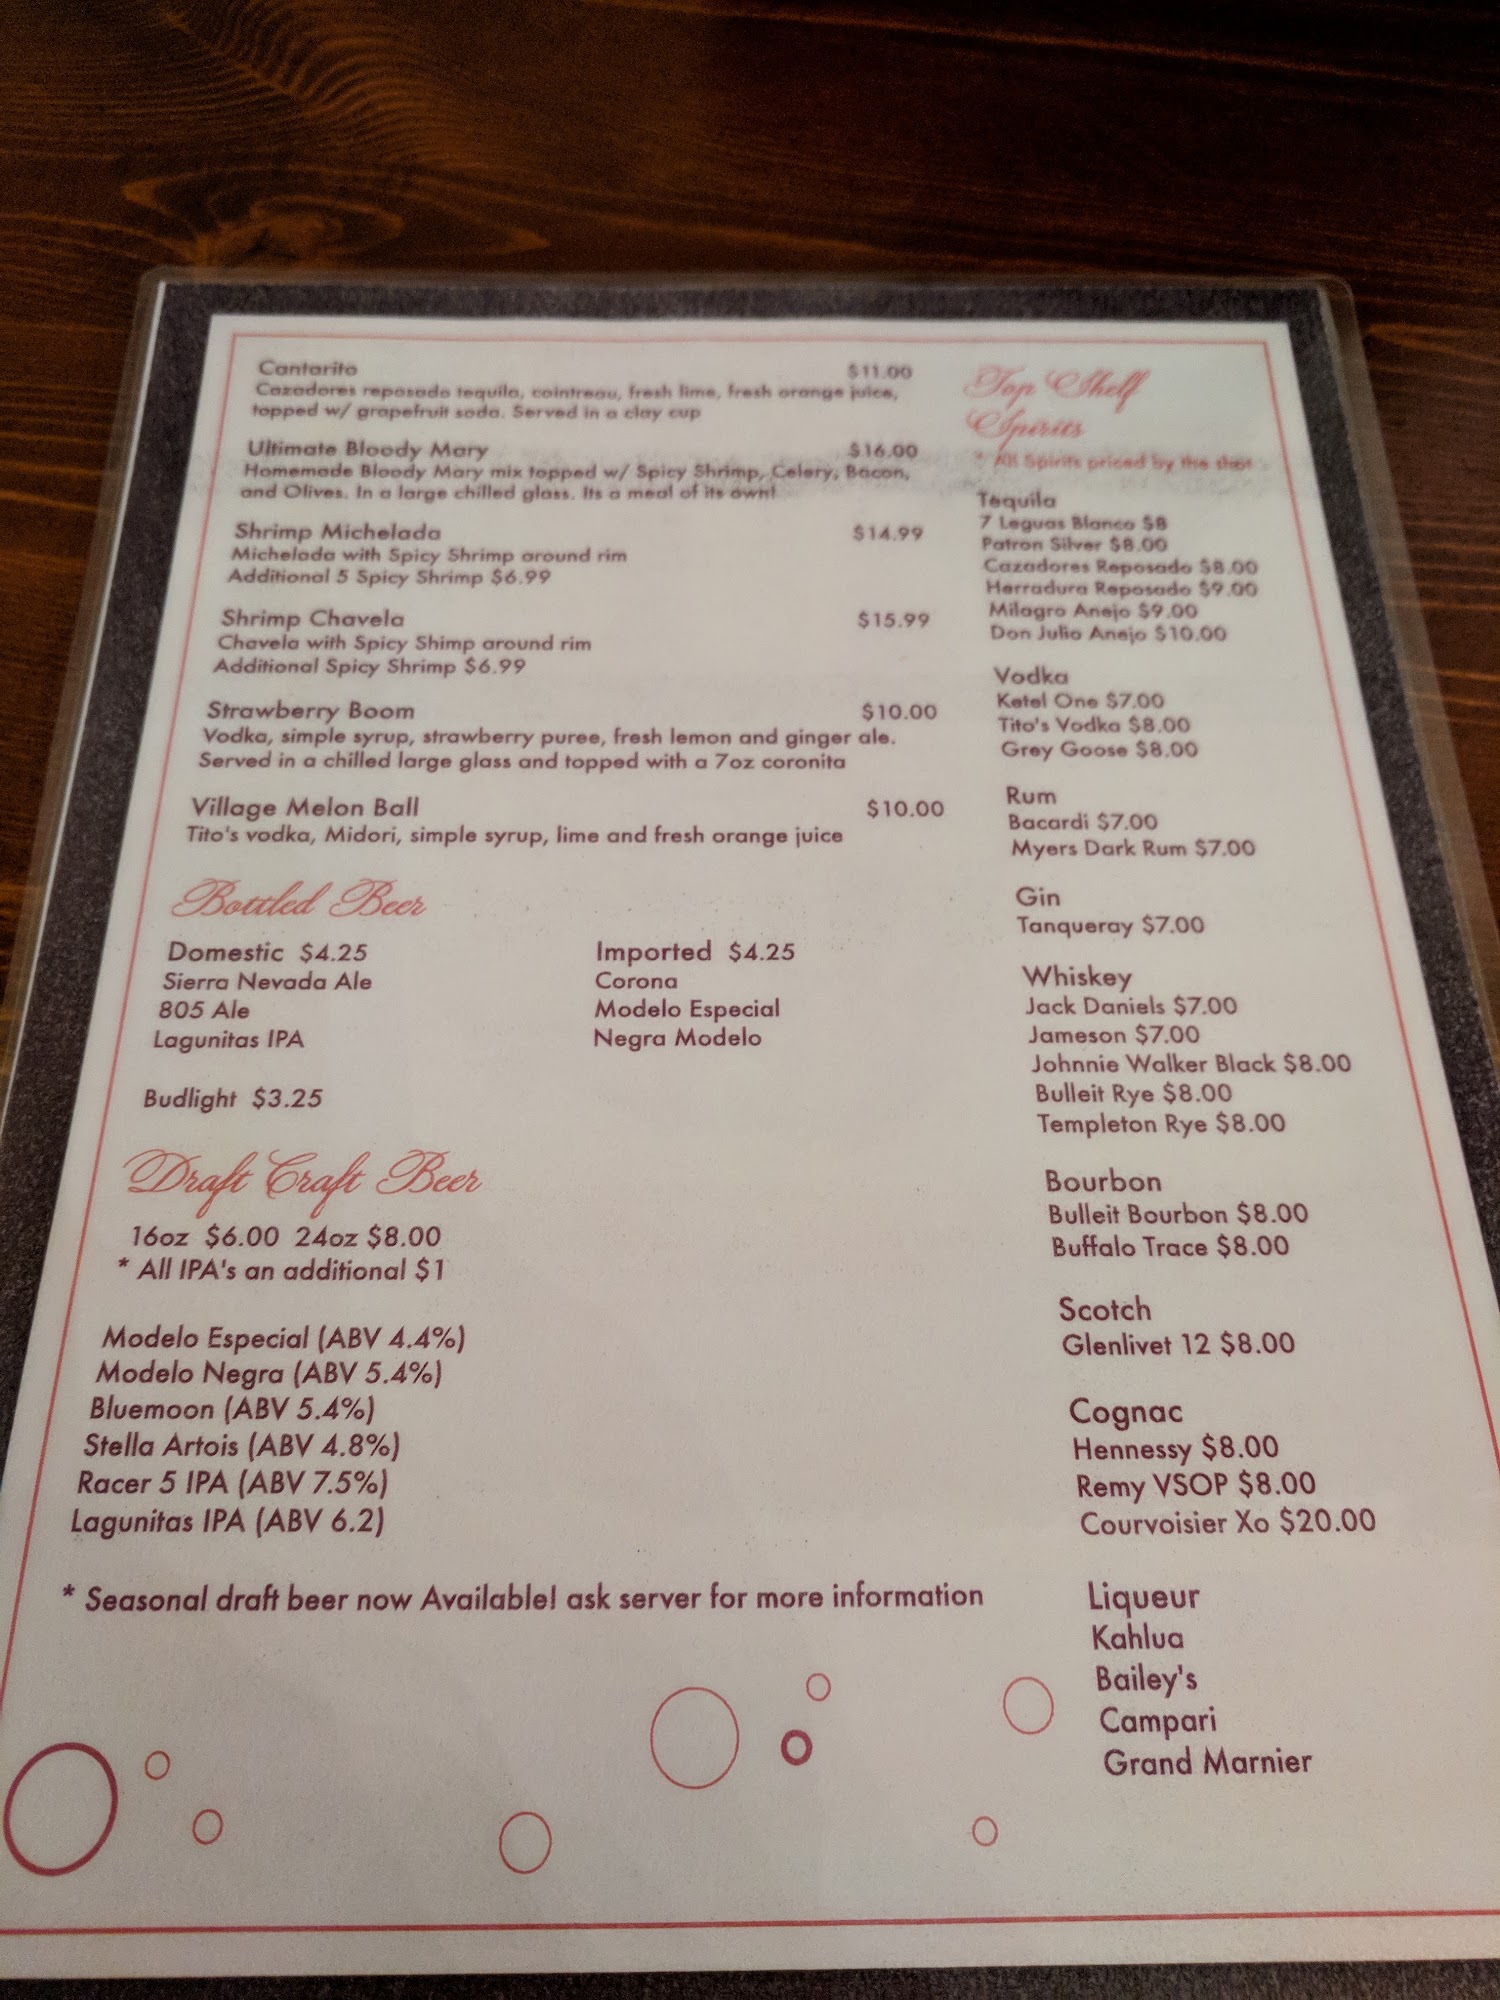 Cantarito $11.00
Cazadores reposado tequila, cointreau, fresh lime, fresh orange juice,
topped w/ grapefruit soda. Served in a clay cup
Ultimate Bloody Mary $16.00
Homemade Bloody Mary mix topped w/ Spicy Shrimp, Celery, Bacon,
and Olives. In a large chilled glass. Its a meal of its own!
Shrimp Michelada $14.99
Michelada with Spicy Shrimp around rim
Additional 5 Spicy Shrimp $6.99
Shrimp Chavela $15.99
Chavela with Spicy Shimp around rim
Additional Spicy Shrimp $6.99
Strawberry Boom $10.00
Vodka, simple syrup, strawberry puree, fresh lemon and ginger ale.
Served in a chilled large glass and topped with a 7oz coronita
Village Melon Ball $10.00
Tito's vodka, Midori, simple syrup, lime and fresh orange juice
Bottled Beer
Domestic $4.25
Sierra Nevada Ale
805 Ale
Lagunitas IPA
Budlight $3.25
Imported $4.25
Corona
Modelo Especial
Negra Modelo
Draft Craft Beer
16oz $6.00 24oz $8.00
* All IPA's an additional $1
Modelo Especial (ABV 4.4%)
Modelo Negra (ABV 5.4%)
Bluemoon (ABV 5.4%)
Stella Artois (ABV 4.8%)
Racer 5 IPA (ABV 7.5%)
Lagunitas IPA (ABV 6.2)
* Seasonal draft beer now Available! ask server for more information
Top Shelf
Spirits
* All Spirits priced by the shot
Tequila
7 Leguas Blanco $8
Patron Silver $8.00
Cazadores Reposado $8.00
Herradura Reposado $9.00
Milagro Anejo $9.00
Don Julio Anejo $10.00
Vodka
Ketel One $7.00
Tito's Vodka $8.00
Grey Goose $8.00
Rum
Bacardi $7.00
Myers Dark Rum $7.00
Gin
Tanqueray $7.00
Whiskey
Jack Daniels $7.00
Jameson $7.00
Johnnie Walker Black $8.00
Bulleit Rye $8.00
Templeton Rye $8.00
Bourbon
Bulleit Bourbon $8.00
Buffalo Trace $8.00
Scotch
Glenlivet 12 $8.00
Cognac
Hennessy $8.00
Remy VSOP $8.00
Courvoisier Xo $20.00
Liqueur
Kahlua
Bailey's
Campari
Grand Marnier